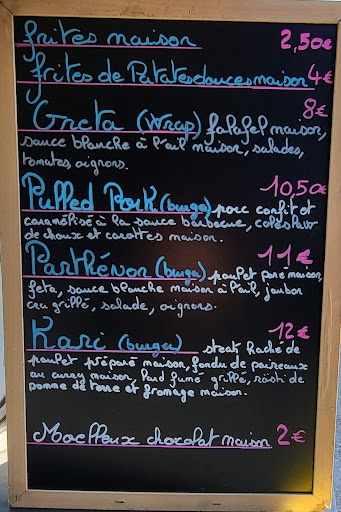 frites maison 2,50€
frites de Patates douces maison 4€
Greta (Wrap) falafel maison, 8€
sauce blanche à l'ail maison, salades,
tomates, oignons.
Pulled Pork (burger) porc confit et 10,50€
caramélisé à la sauce barbecue, coleslaw
de choux et carottes maison.
Parthénon (burger) poulet pané maison, 11€
feta, sauce blanche maison à l'ail, jambon
cru grillé, salade, oignons.
Kari (burger) steak haché de 12€
poulet préparé maison, fondu de poireaux
au curry maison, lard fumé grillé, rösti de
pomme de terre et fromage maison.
Moelleux chocolat maison 2€